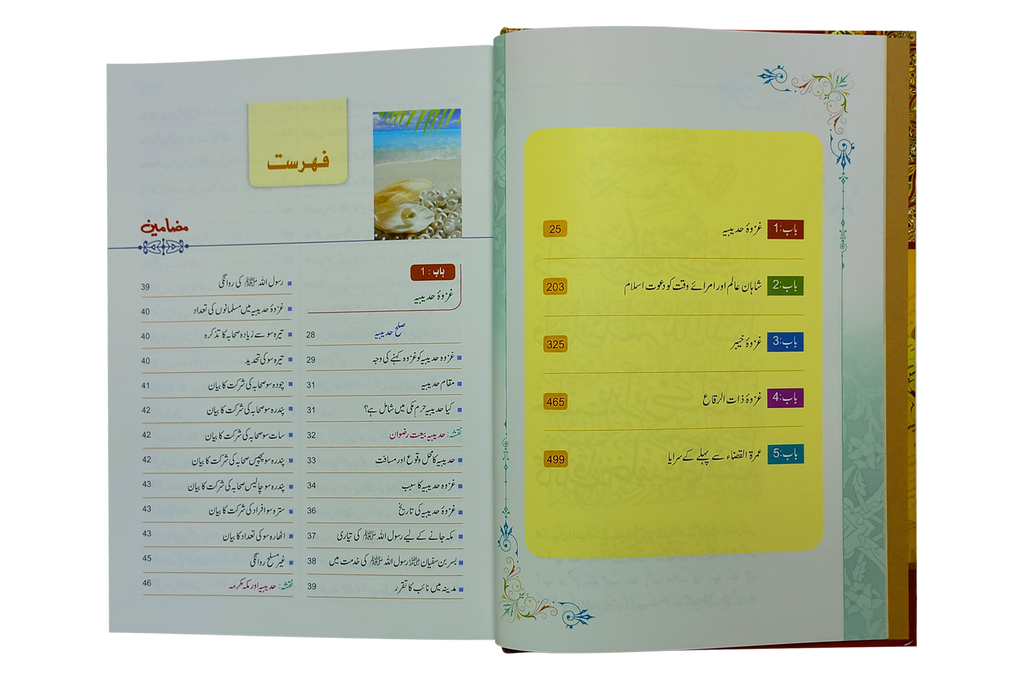 باب:1 غزوۂ حدیبیہ 25
باب:2 شاہان عالم اور امرائے وقت کو دعوت اسلام 203
باب:3 غزوۂ خیبر 325
باب:4 غزوۂ ذات الرقاع 465
باب:5 عمرۃ القضاء سے پہلے کے سرایا 499
فہرست
مضامین
باب : 1
غزوۂ حدیبیہ
صلح حدیبیہ 28
غزوہ حدیبیہ کو غزوہ کہنے کی وجہ 29
مقام حدیبیہ 31
کیا حدیبیہ حرم مکی میں شامل ہے؟ 31
نقشہ: حدیبیہ بیعت رضوان 32
حدیبیہ کا محل وقوع اور مسافت 33
غزوہ حدیبیہ کا سبب 34
غزوۂ حدیبیہ کی تاریخ 36
مکہ جانے کے لیے رسول اللہ ﷺ کی تیاری 37
بسر بن سفیان رسول اللہ ﷺ کی خدمت میں 38
مدینہ میں نائب کا تقرر 39
رسول اللہ ﷺ کی روانگی 39
غزوۂ حدیبیہ میں مسلمانوں کی تعداد 40
تیرہ سو سے زیادہ صحابہ کا تذکرہ 40
تیرہ سو کی تحدید 40
چودہ سو صحابہ کی شرکت کا بیان 41
پندرہ سو صحابہ کی شرکت کا بیان 42
سات سو صحابہ کی شرکت کا بیان 42
پندرہ سو پچیس صحابہ کی شرکت کا بیان 42
پندرہ سو چالیس صحابہ کی شرکت کا بیان 43
سترہ سو افراد کی شرکت کا بیان 43
اٹھارہ سو کی تعداد کا بیان 43
غیر مسلح روانگی 45
نقشہ: حدیبیہ اور مکہ مکرمہ 46